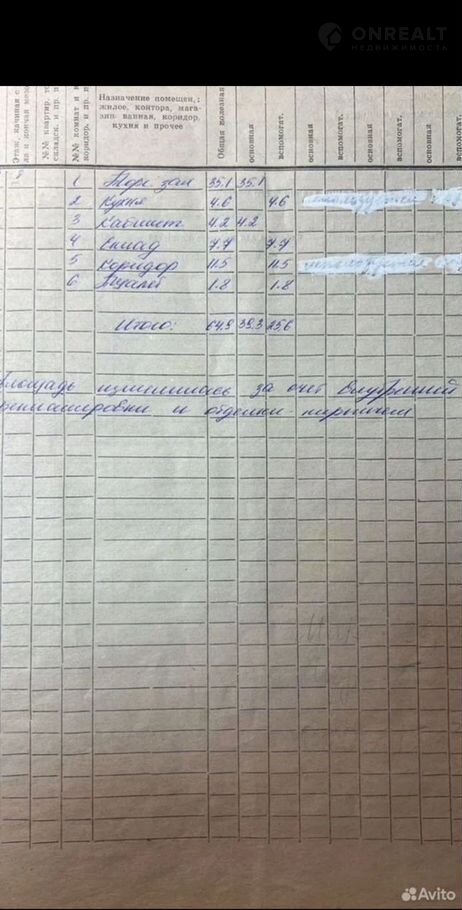 ONREALT
НЕДВИЖИМОСТЬ
Этаж, начиная с
№№ квартир,
складск. и пр.
№№ комнат и
коридор. и пр.
Назначение помещен.:
жилое, контора, мага-
зин ванная, коридор,
кухня и прочее
Общая полезная
основная
вспомогат.
основная
вспомогат.
основная
вспомогат.
основная
вспомогат.
1 Торг. зал 35.1 35.1
2 Кухня 4.6 4.6
3 Кабинет 4.2 4.2
4 Склад 7.7 7.7
5 Коридор 11.5 11.5
6 Туалет 1.8 1.8
Итого: 64.9 39.3 25.6
площадь изменилась за счет внутренней
и отделки кирпичем
Avito